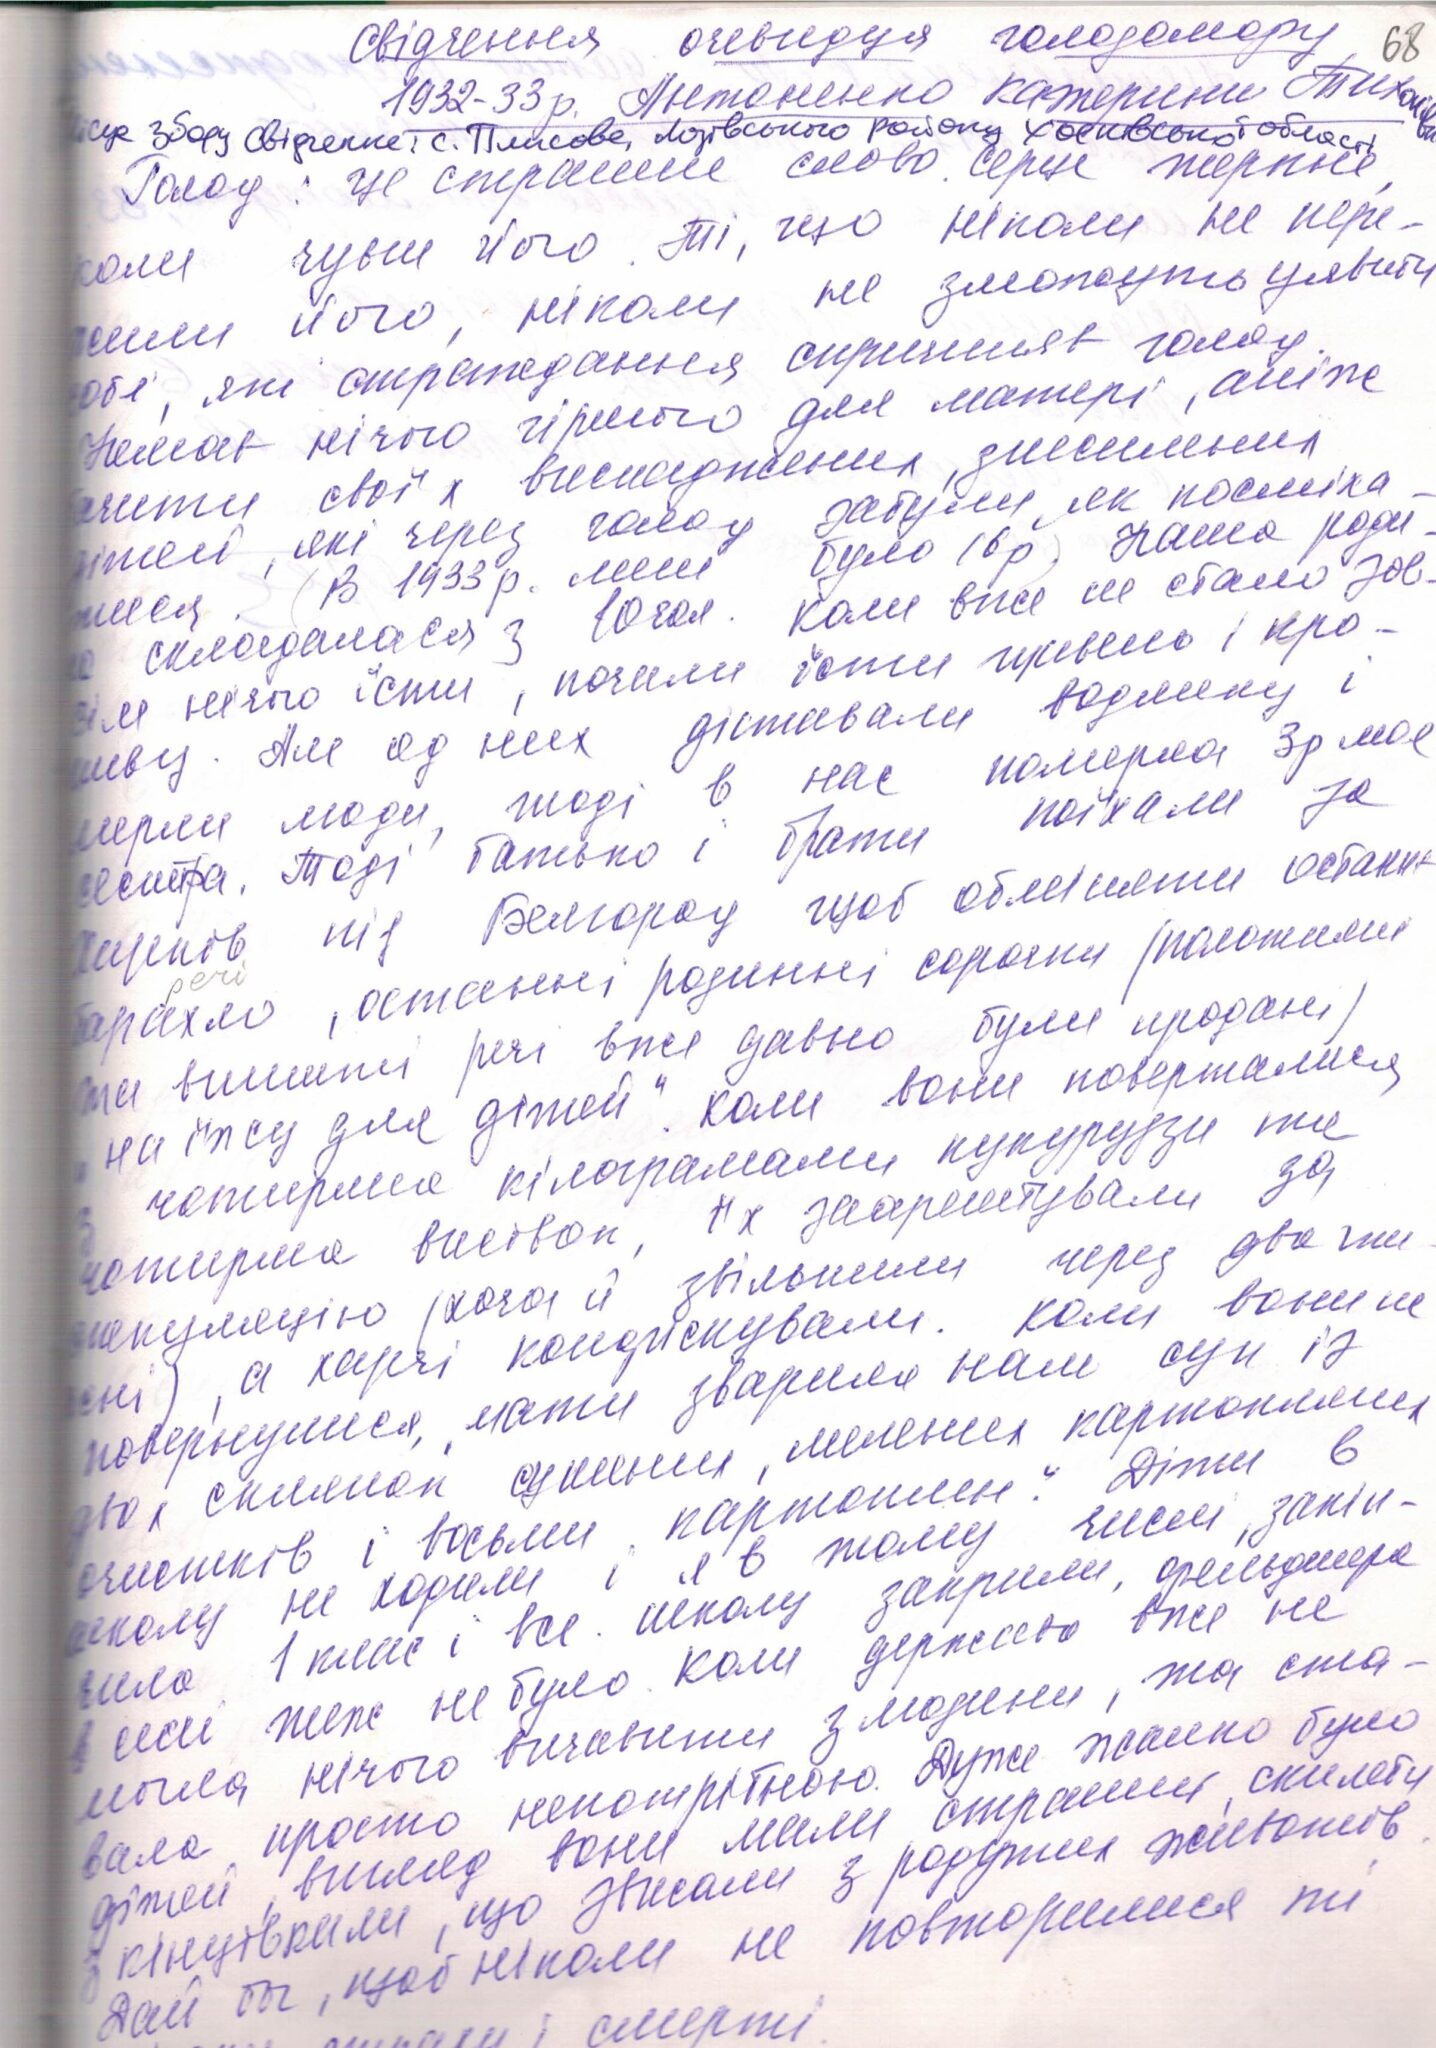 68
Свідчення очевидця голодомору
1932-33р. Антоненко Катерини Тихонівни
місце збору свідчення: с. Плисове, Лозівського району Харківської області
Голод: це страшне слово. серце терпне,
коли чуєш його. Ті, що ніколи не пере-
жили його, ніколи не зможуть уявити
собі, які страждання спричиняв голод.
Немає нічого гіршого для матері, аніж
бачити своїх виснажених, знесилених
дітей, які через голод забули, як посміха-
тися. (В 1933р. мені було 16р) Наша роди-
на складалася з 10 чол. Коли вже не стало зов-
сім нічого їсти, почали їсти цвель і кро-
пиву. Але од них діставали водянку і
мерли люди, тоді в нас померла 3р моя
сестра. Тоді батько і брати поїхали за
Харків під Белгород щоб обміняти останнє
речі
барахло, останні родинні сорочки (полотняні
та вишиті речі вже давно були продані)
"на їжу для дітей". Коли вони поверталися
з чотирма кілограмами кукурудзи та
чотирма висівок, їх заарештували за
спекуляцію (хоча й звільнили через два ти-
жні), а харчі конфіскували. Коли вони не
повернулися, мати зварила нам суп із
двох склянок сушених, мелених картопляних
очистків і восьми картоплин". Діти в
школу не ходили і я в тому числі, закін-
чила 1 клас і все. Школу закрили, фельдшера
в селі теж не було. Коли держава вже не
могла нічого вичавити з людини, та ста-
вала просто непотрібною. Дуже жалко було
дітей, вигляд вони мали страшний, скилети
з кінцівками, що звисали з роздутих животів.
Дай бог, щоб ніколи не повторилися ті
страху і смерті.